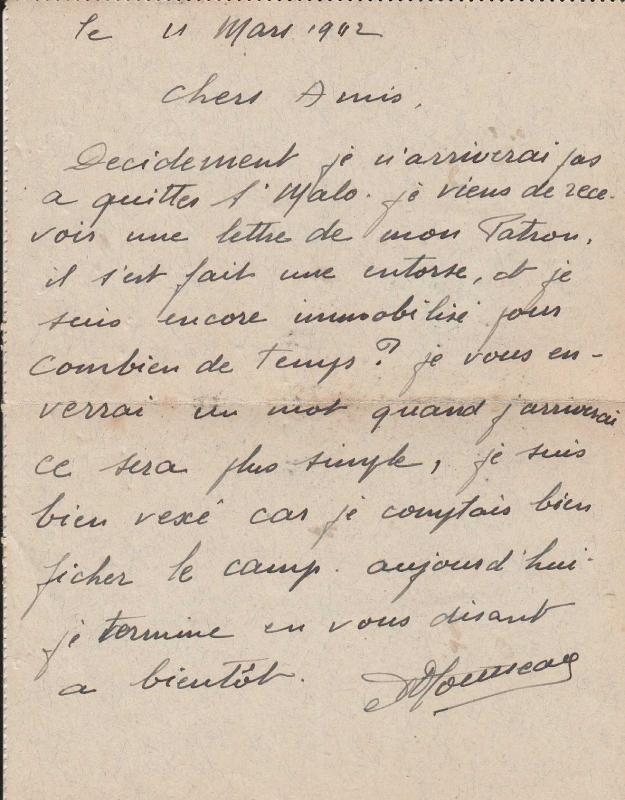 le 11 Mars 1942
Chers Amis,
Decidement je n'arriverai pas
a quitter St Malo. je viens de rece-
voir une lettre de mon Patron,
il s'est fait une entorse, et je
suis encore immobilisé pour
Combien de Temps? je vous en-
verrai un mot quand j'arriverai
ce sera plus simple, je suis
bien vexé car je comptais bien
ficher le camp. aujourd'hui.
je termine en vous disant
a bientôt.